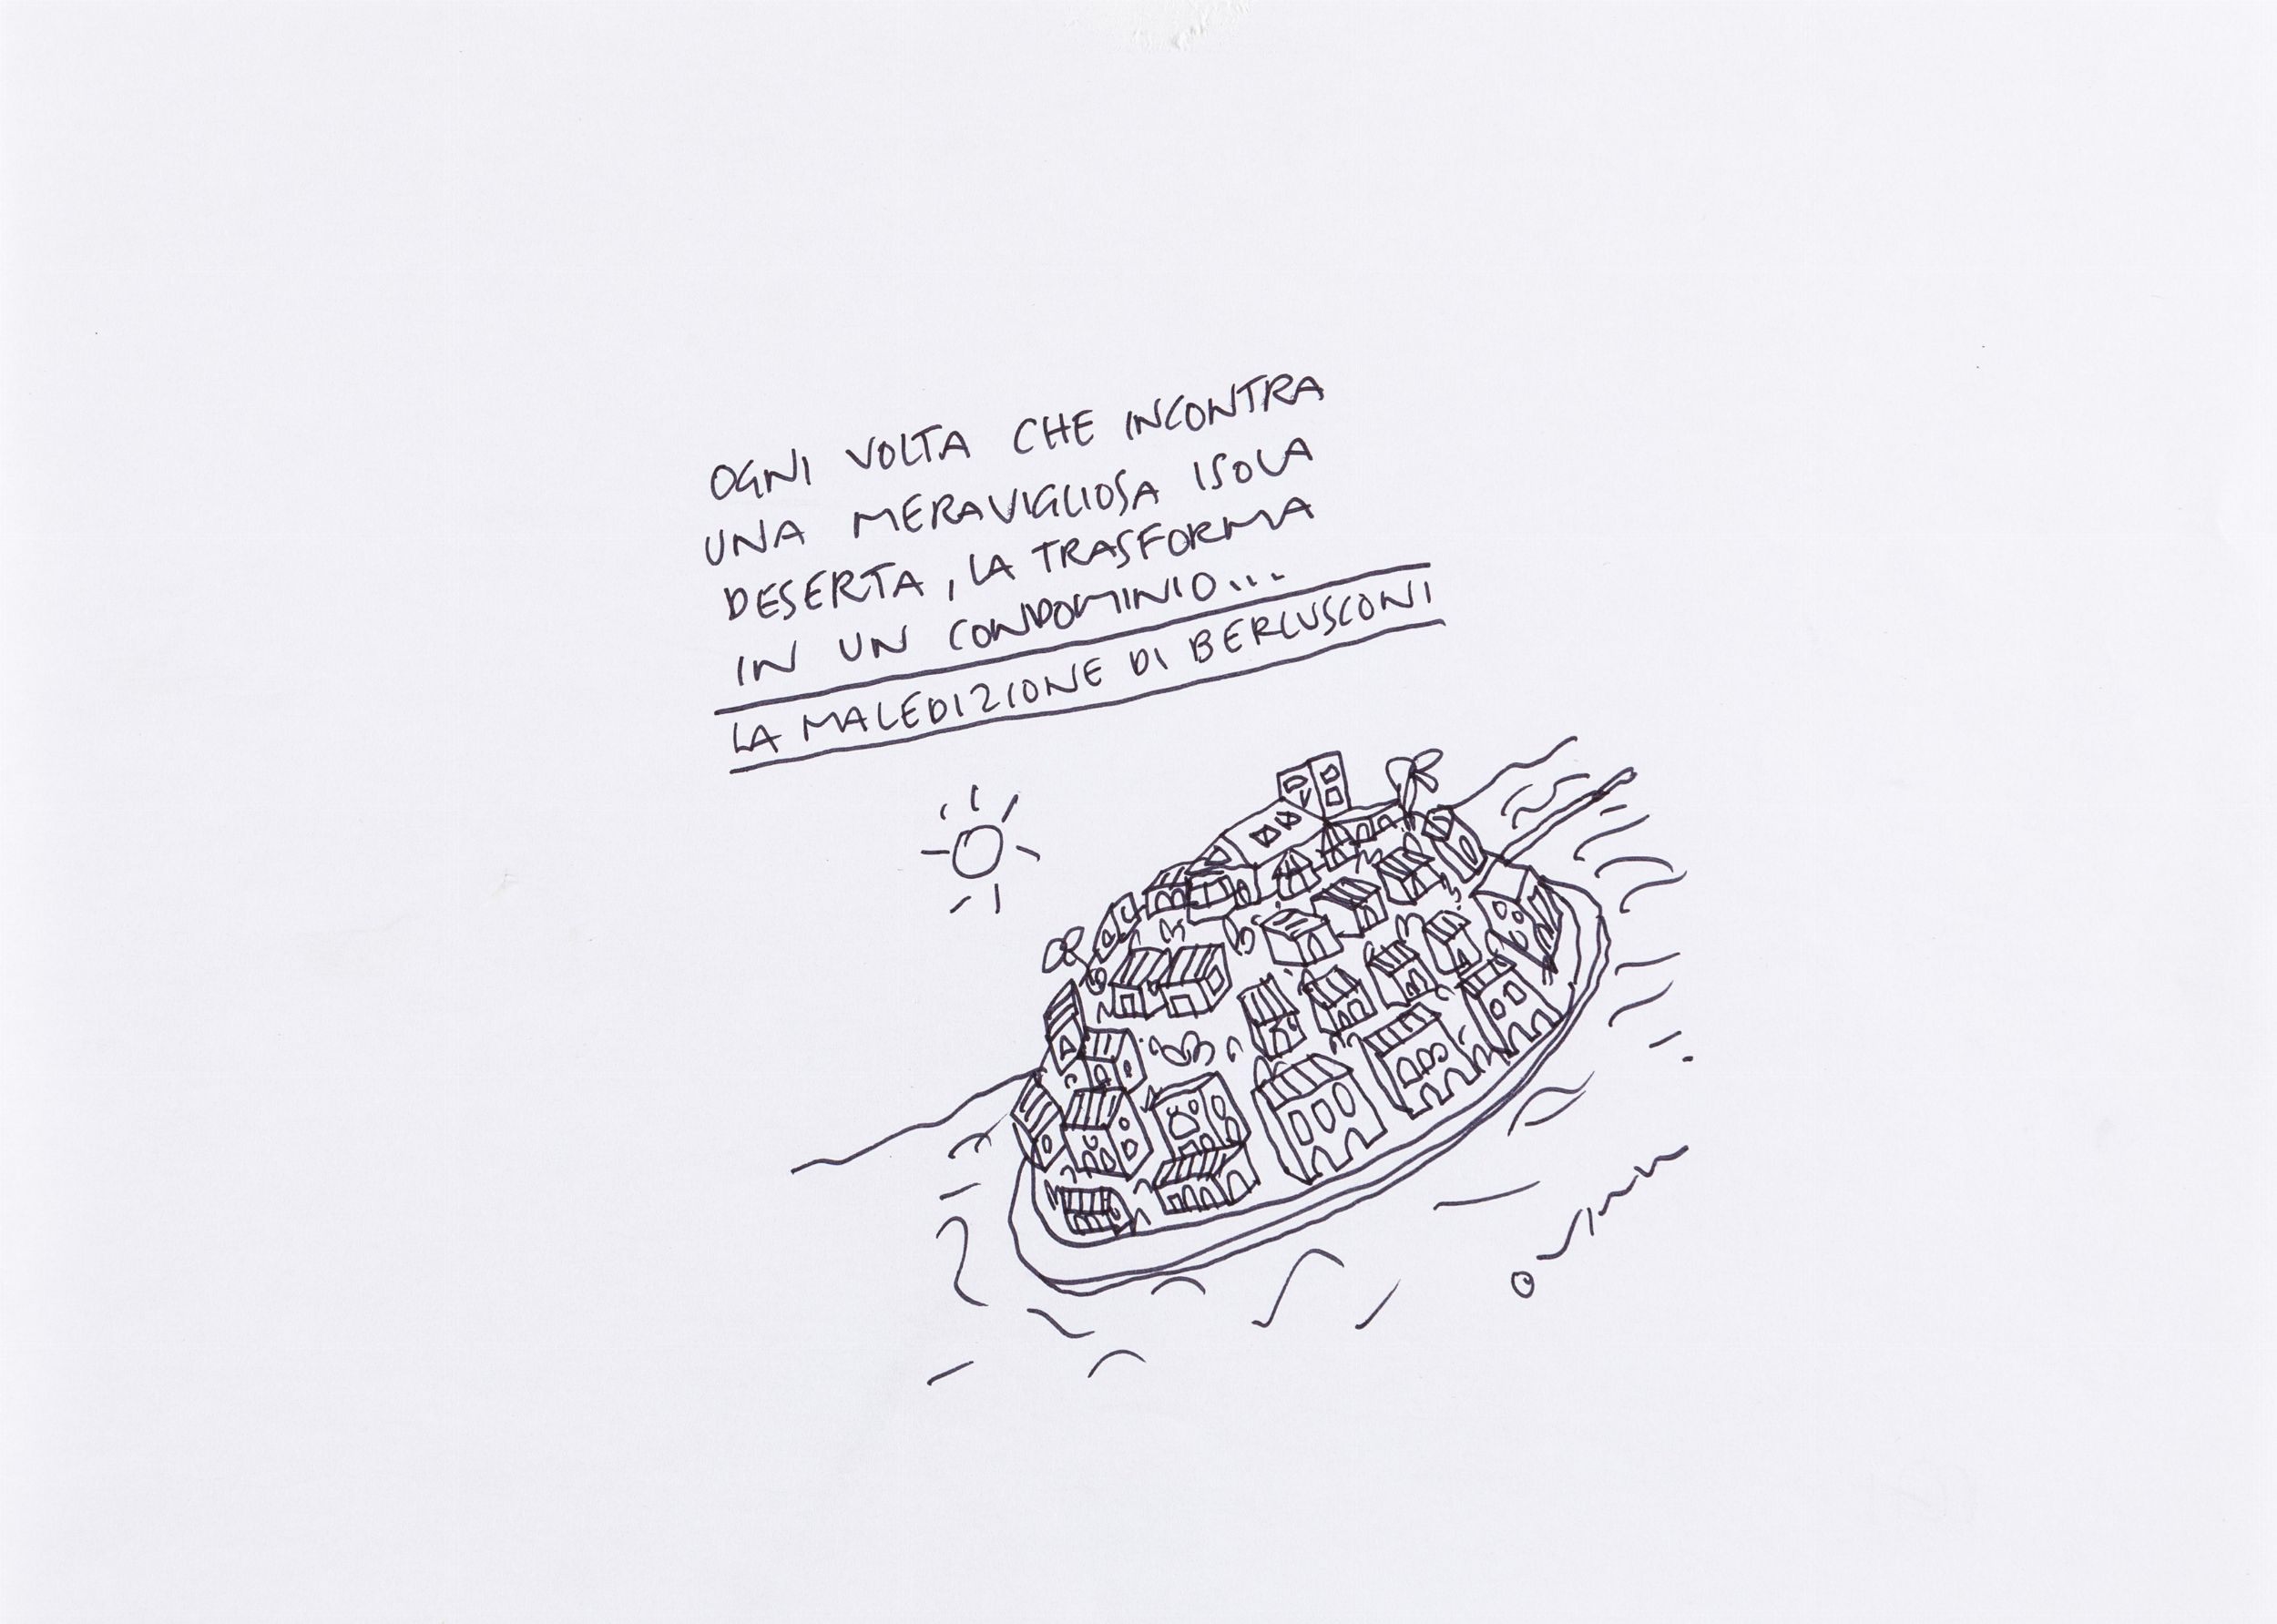 OGNI VOLTA CHE INCONTRA
UNA MERAVIGLIOSA ISOLA
DESERTA, LA TRASFORMA
IN UN CONDOMINIO...
LA MALEDIZIONE DI BERLUSCONI